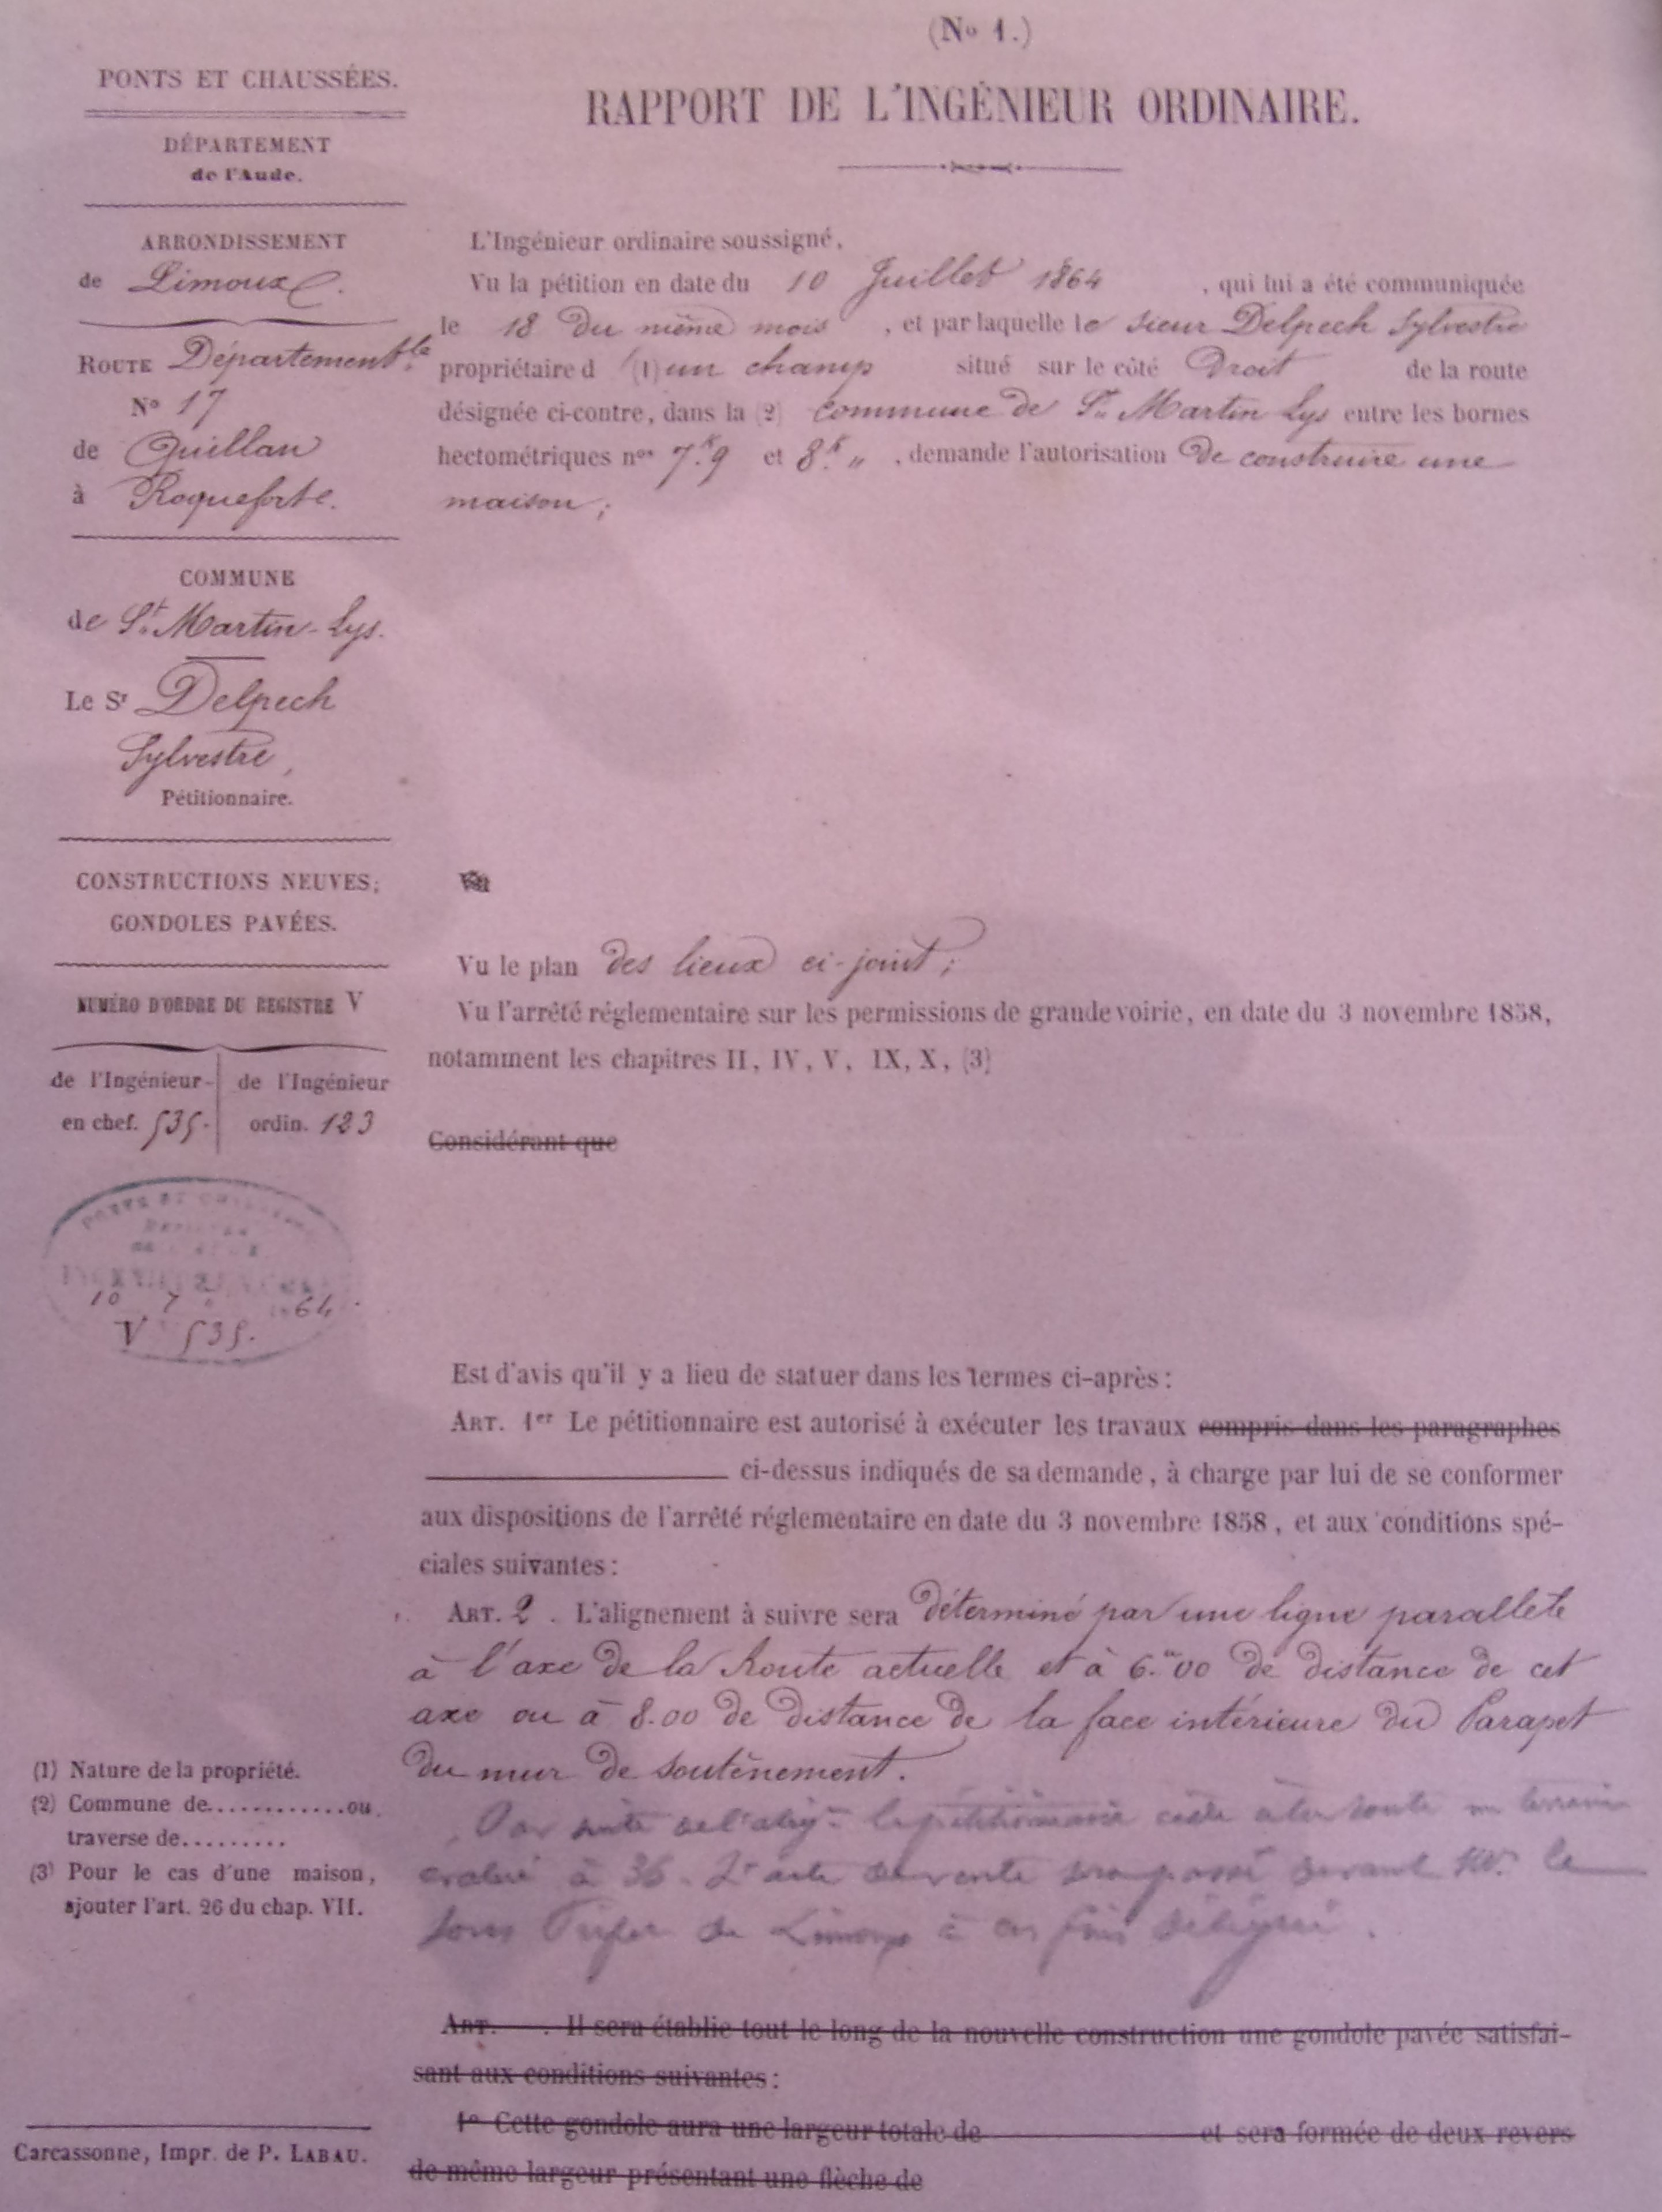 (No 1.)
PONTS ET CHAUSSÉES.
DÉPARTEMENT
de l'Aude.
ARRONDISSEMENT
de Limoux.
ROUTE Départementle
No 17
de Quillan
à Roquefort.
COMMUNE
de St. Martin-Lys.
Le Sr Delpech
Sylvestre,
Pétitionnaire.
CONSTRUCTIONS NEUVES;
GONDOLES PAVÉES.
NUMÉRO D'ORDRE DU REGISTRE V
de l'Ingénieur en chef. 535.
de l'Ingénieur ordin. 123
PONTS ET
10 7 64.
V 535.
(1) Nature de la propriété.
(2) Commune de............ou
traverse de.........
(3) Pour le cas d'une maison,
ajouter l'art. 26 du chap. VII.
Carcassonne, Impr. de P. LABAU.
RAPPORT DE L'INGÉNIEUR ORDINAIRE.
L'Ingénieur ordinaire soussigné,
Vu la pétition en date du 10 Juillet 1864, qui lui a été communiquée
le 18 du même mois, et par laquelle le sieur Delpech Sylvestre
propriétaire d'(1) un champ situé sur le côté Droit de la route
désignée ci-contre, dans la (2) commune de St. Martin Lys entre les bornes
hectométriques nos 7.k9 et 8.k „, demande l'autorisation De construire une
maison;
Vu le plan des lieux ci-joint;
Vu l'arrêté réglementaire sur les permissions de grande voirie, en date du 3 novembre 1858,
notamment les chapitres II, IV, V, IX, X, (3)
Considérant que
Est d'avis qu'il y a lieu de statuer dans les termes ci-après:
ART. 1er Le pétitionnaire est autorisé à exécuter les travaux compris dans les paragraphes
ci-dessus indiqués de sa demande, à charge par lui de se conformer
aux dispositions de l'arrêté réglementaire en date du 3 novembre 1858, et aux conditions spé-
ciales suivantes:
ART. 2. L'alignement à suivre sera déterminé par une ligne parallèle
à l'axe de la Route actuelle et à 6.m00 de distance de cet
axe ou à 8.00 de distance de la face intérieure du Parapet
du mur de soutènement.
Par suite de l'alig.t le pétitionnaire cède à la route un terrain
évalué à 36. L'acte de vente sera passé devant Mr. le
Sous Préfet de Limoux à ces fins délégué.
ART. . Il sera établie tout le long de la nouvelle construction une gondole pavée satisfai-
sant aux conditions suivantes:
1o Cette gondole aura une largeur totale de et sera formée de deux revers
de même largeur présentant une flèche de